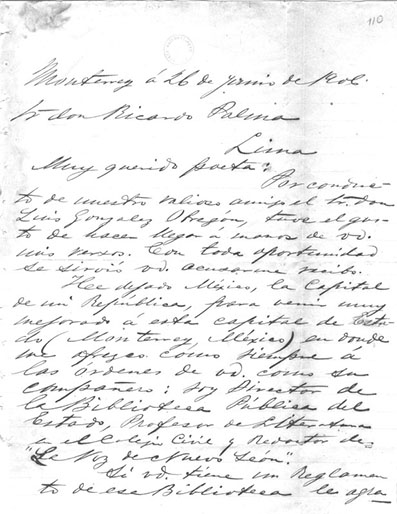 110
Monterrey á 26 de Junio de 1906.
Sr don Ricardo Palma
Lima
Muy querido poeta:
Por conduc-
to de nuestro valioso amigo el Sr. don
Luis Gonzalez Obregón, tuve el gus-
to de hacer llegar á manos de vd.
mis versos. Con toda oportunidad
se sirvió vd. acusarme recibo.
He dejado México, la Capital
de mi República, para venir muy
mejorado á esta capital de Esta-
do (Monterrey, México) en donde
me ofrezco como siempre á
las órdenes de vd. como su
compañero: soy Director de
la Biblioteca Pública del
Estado, Profesor de Literatura
en el Colegio Civil y Redactor de
"La Voz de Nuevo León".
Si vd. tiene un Reglamen-
to de esa Biblioteca le agra-